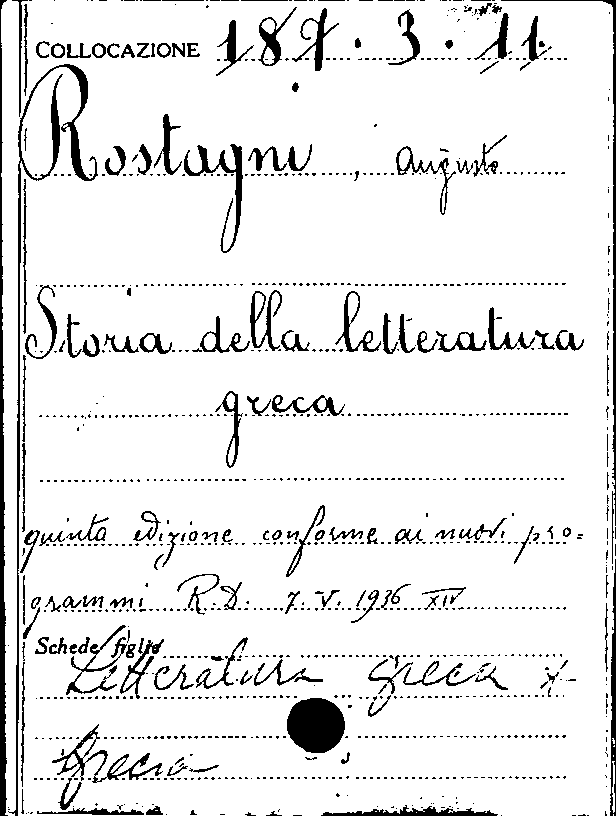 COLLOCAZIONE 187.3.11
Rostagni, Augusto
Storia della letteratura
greca
quinta edizione conforme ai nuovi pro=
grammi R.D. 7.V.1936 XIV
Schede figlie
Letteratura greca x
Grecia